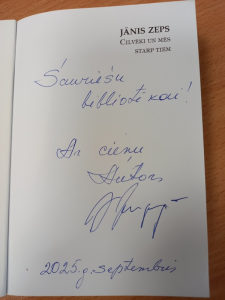 JĀNIS ZEPS
CILVĒKI UN MĒS
STARP TIEM
bibliotēkai!
Ar cieņu
Autors
2025.g. septembris